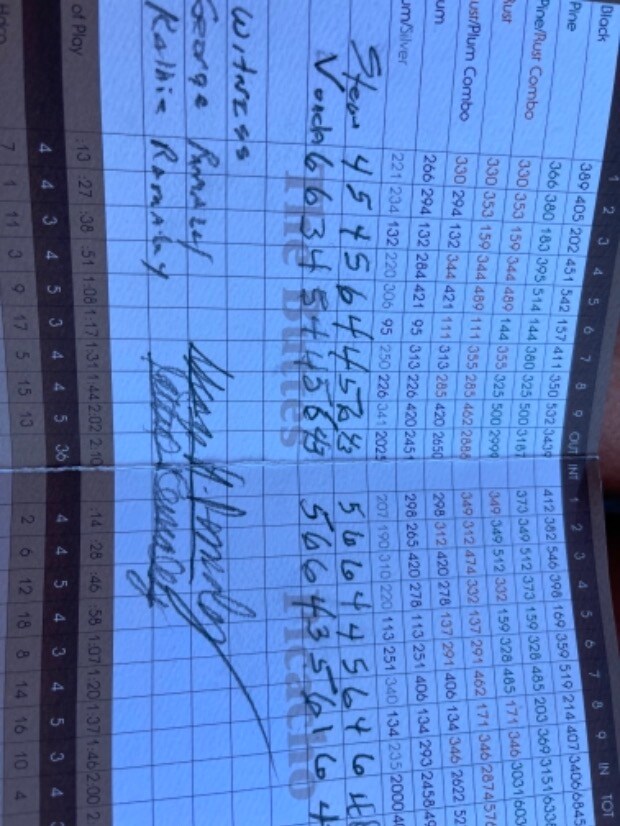 1 2 3 4 5 6 7 8 9 OUT INT 1 2 3 4 5 6 7 8 9 IN TOT
Black 389 405 202 451 542 157 411 350 532 3439 412 382 546 398 169 359 519 214 407 3406 6845
Pine 366 380 183 395 514 144 380 325 500 3187 373 349 512 373 159 328 485 203 369 3151 633
Pine/Rust Combo 330 353 159 344 489 144 355 325 500 2999 349 349 512 332 159 328 485 171 346 3031 603
Rust 330 353 159 344 489 111 355 285 462 2888 349 312 474 332 137 291 462 171 346 2874 576
ust/Plum Combo 330 294 132 344 421 111 313 285 420 2650 298 312 420 278 137 291 406 134 346 2622 52
um 266 294 132 284 421 95 313 226 420 2451 298 265 420 278 113 251 406 134 293 2458 49
um/Silver 221 234 132 220 306 95 250 226 341 2025 207 190 310 220 113 251 340 134 235 2000 4
4 5 4 5 6 4 4 5 43 5 6 6 4 4 5 6 4 6
6 6 3 4 5 4 4 5 6 43 5 6 6 4 3 5 6 6 4
The Buttes Picacho
Witness
George Ramsley
Kathie Ramsley
of Play :13 :27 :38 :51 1:08 1:17 1:31 1:44 2:02 2:10 :14 :28 :46 :58 1:07 1:20 1:37 1:46 2:00 2
4 4 3 4 5 3 4 4 5 36 4 4 5 4 3 4 5 3 4
7 1 11 3 9 17 5 15 13 2 6 12 18 8 14 16 10 4